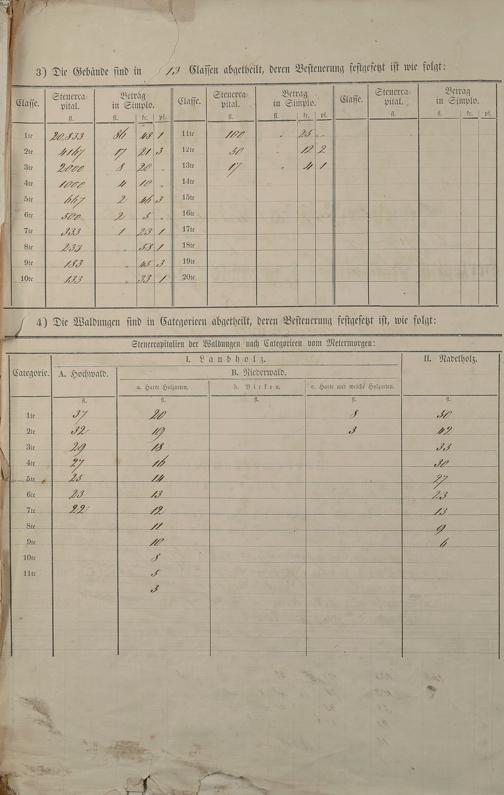 3) Die Gebäude sind in 13 Classen abgetheilt, deren Besteuerung festgesetzt ist wie folgt:
Classe. Steuerca-pital. Betrag in Simplo. Classe. Steuerca-pital. Betrag in Simplo. Classe. Steuerca-pital. Betrag in Simplo.
fl. fl. kr. pf. fl. fl. kr. pf. fl. fl. kr. pf.
1te 20,833 86 48 1 11te 100 . 25 .
2te 4167 17 21 3 12te 50 . 12 2
3te 2000 8 20 . 13te 17 . 4 1
4te 1000 4 10 . 14te
5te 667 2 46 3 15te
6te 500 2 5 . 16te
7te 333 1 23 1 17te
8te 233 . 58 1 18te
9te 183 . 45 3 19te
10te 133 . 33 1 20te
4) Die Waldungen sind in Categorieen abgetheilt, deren Besteuerung festgesetzt ist, wie folgt:
Steuercapitalien der Waldungen nach Categorieen vom Metermorgen:
Categorie. I. Laubholz. II. Nadelholz.
A. Hochwald. B. Niederwald.
a. Harte Holzarten. b. Birken. c. Harte und weiche Holzarten.
fl. fl. fl. fl. fl.
1te 37 20 8 50
2te 32 19 3 42
3te 29 18 33
4te 27 16 30
5te 25 14 27
6te 23 13 23
7te 22 12 13
8te 11 9
9te 10 6
10te 8
11te 5
3